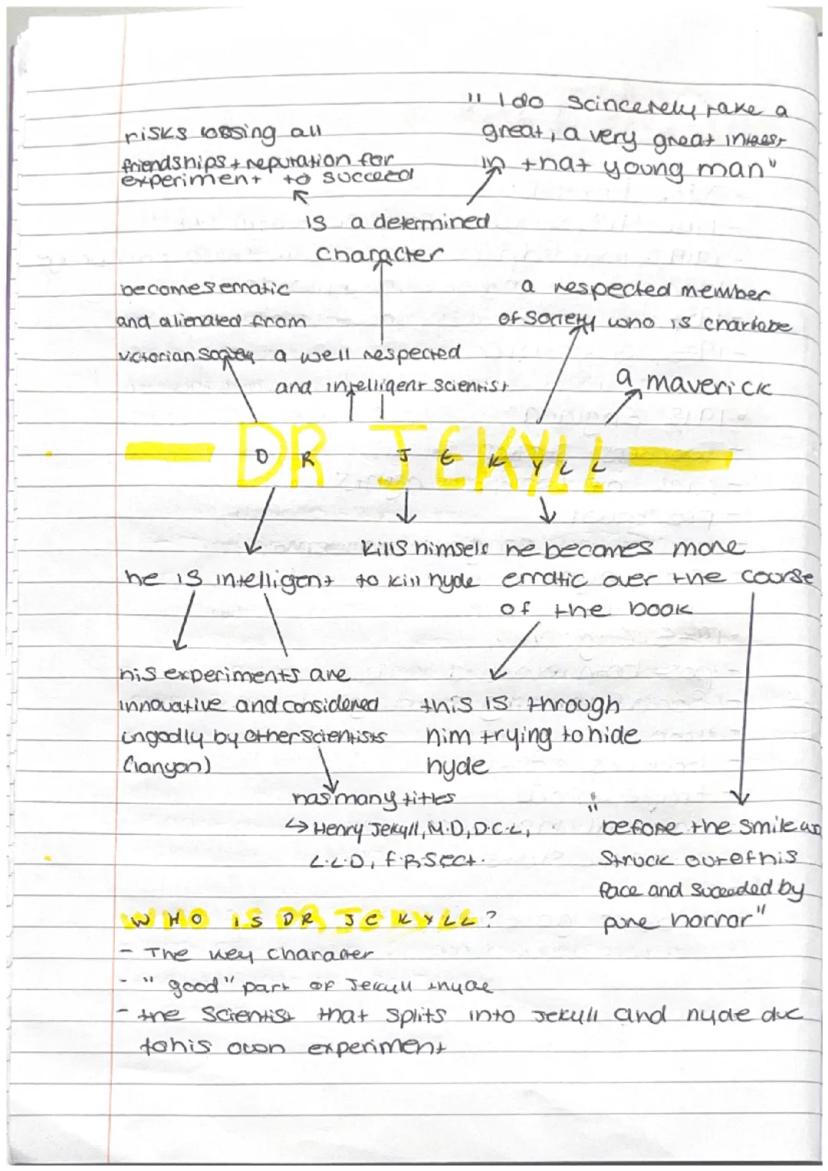 risks lossing all
friendships + reputation for
experiment to succeed
" I do scincerely take a
great, a very great interest
in that young man"
is a determined
character
becomes erratic
and alienated from
victorian society
a well respected
and intelligent scientist
a respected member
of society who is
a maverick
DR JEKYLL
D R J E K Y L L
he is intelligent
kills himself
to kill hyde
he becomes more
erratic over the course
of the book
his experiments are
innovative and considered
ungodly by other scientists
(lanyon)
this is through
him trying to hide
hyde
has many titles
↳ Henry Jekyll, M.D, D.C.L,
L.L.D, F.R.S ect.
"before the smile was
struck out of his
face and suceeded by
pure horror"
WHO IS DR JEKYLL?
- The key character
- "good" part of Jekyll + hyde
- the scientist that splits into Jekyll and hyde due
to his own experiment